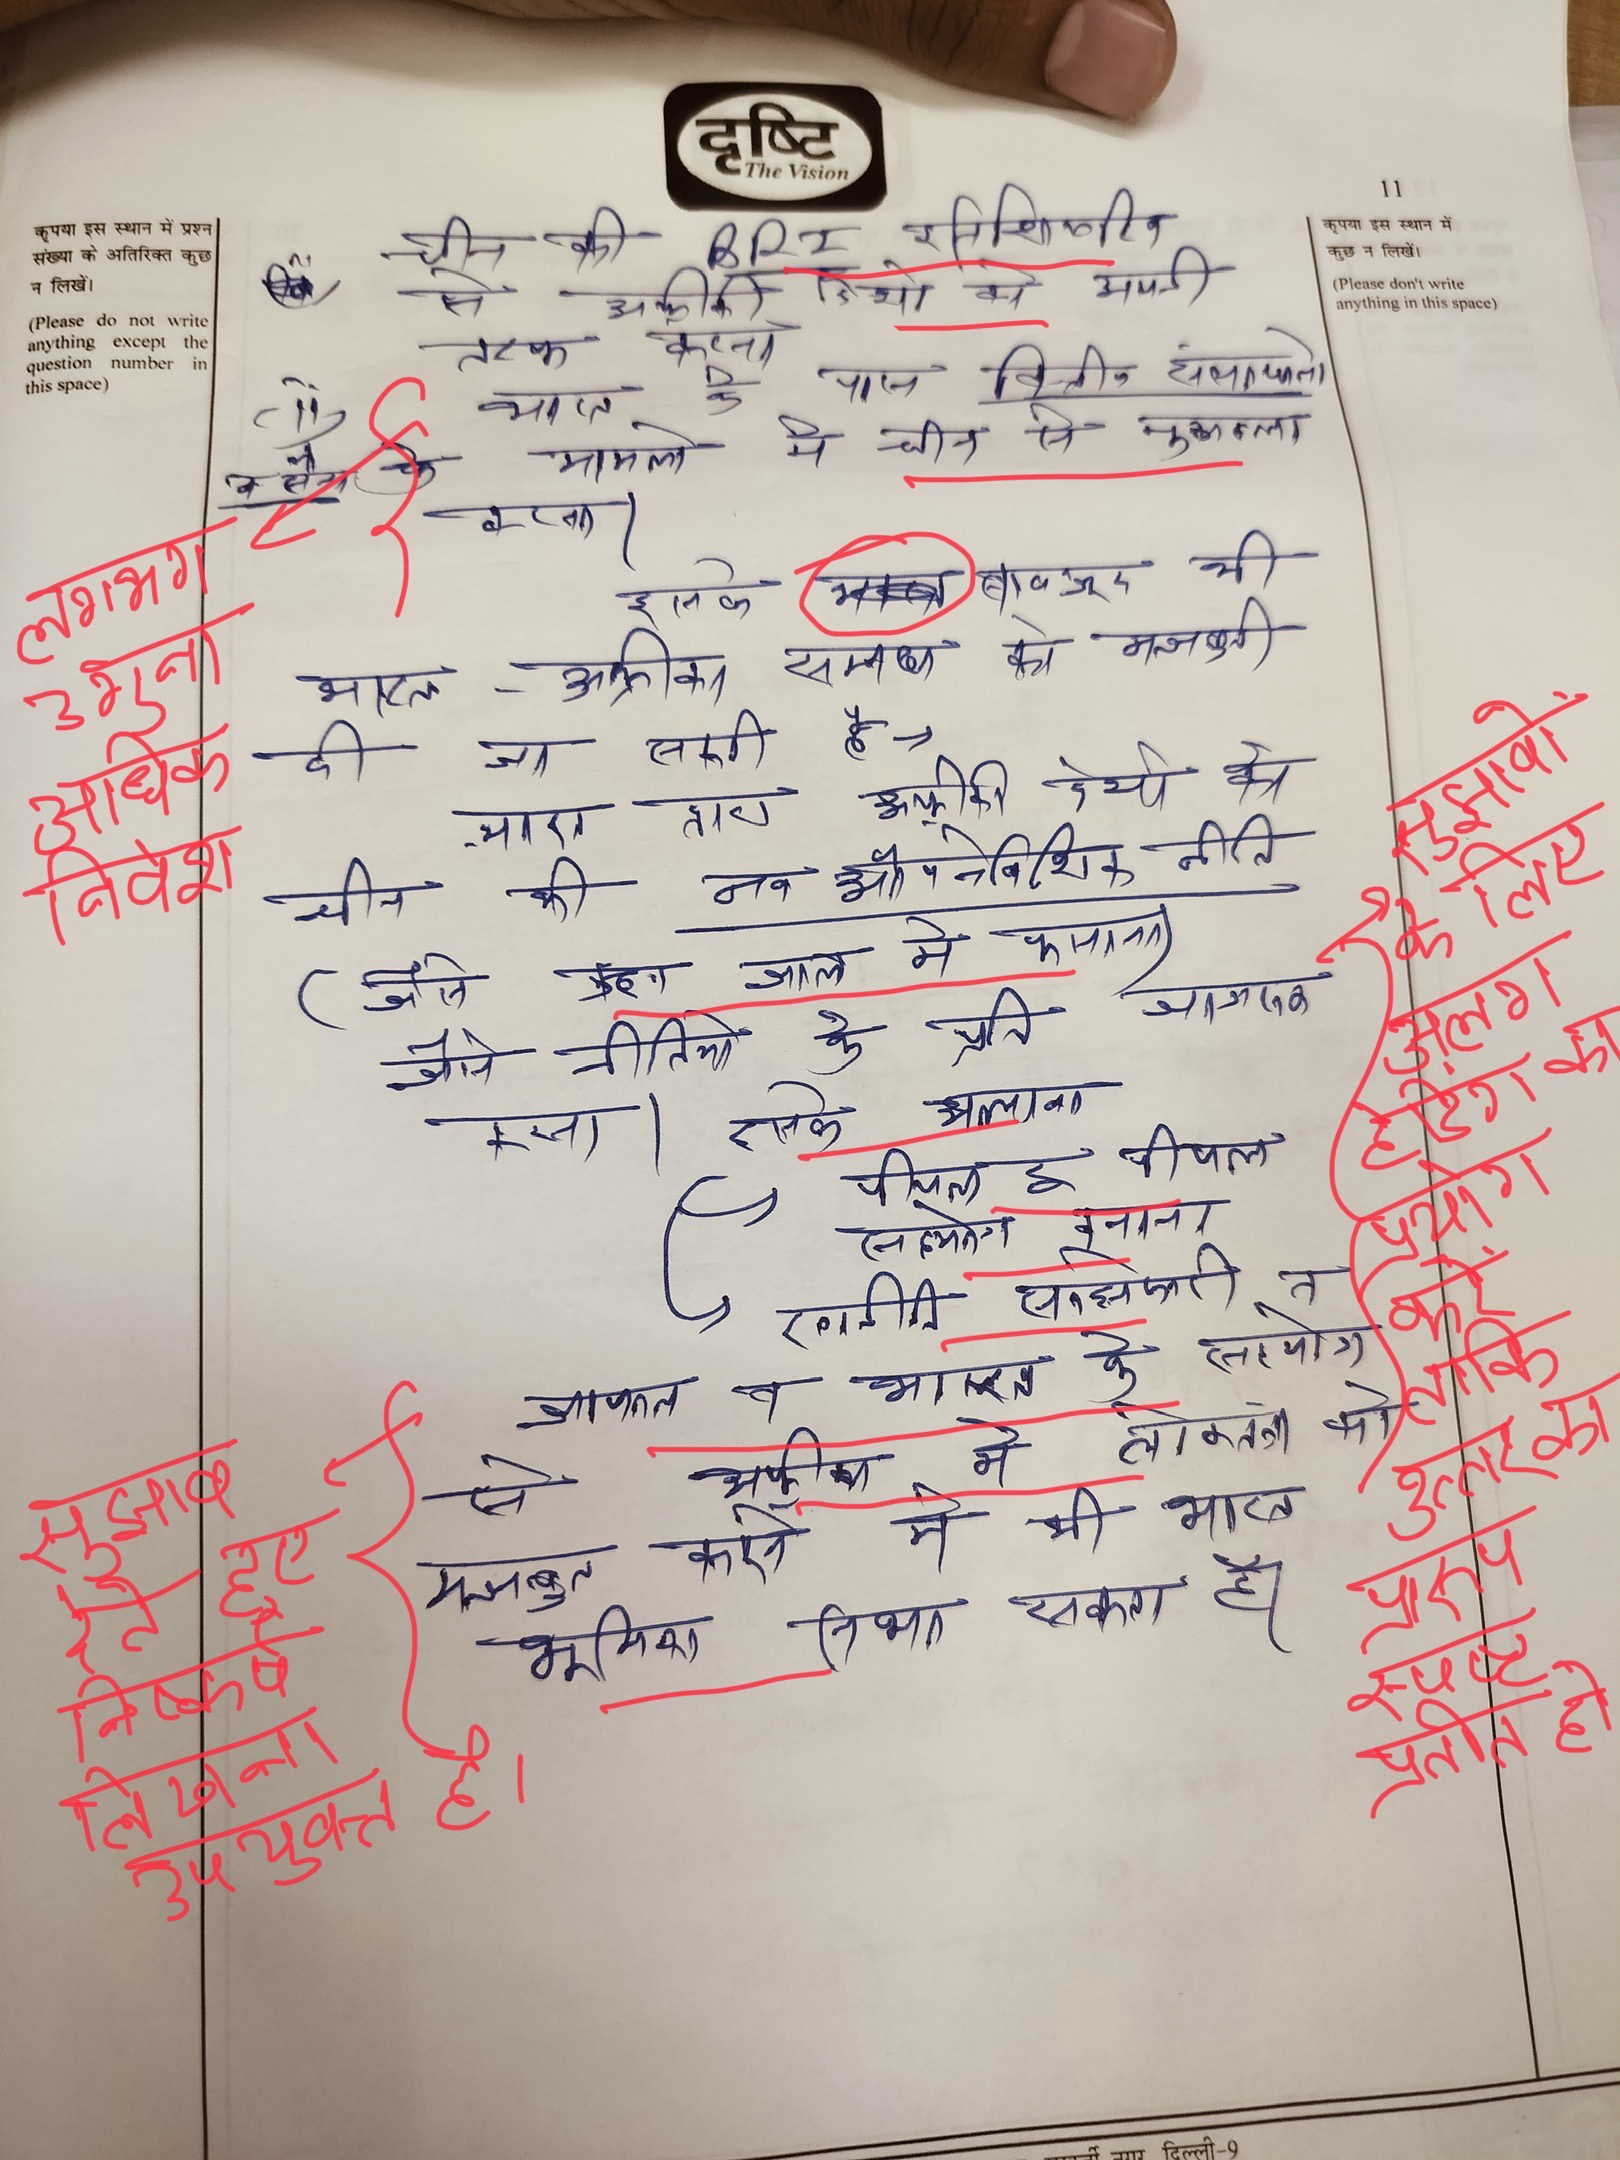 दृष्टि
The Vision
11
कृपया इस स्थान में प्रश्न
संख्या के अतिरिक्त कुछ
न लिखें।
(Please do not write
anything except the
question number in
this space)
कृपया इस स्थान में
कुछ न लिखें।
(Please don't write
anything in this space)
चीन की BRI
से अफ्रीकी देशों को अपनी
तरफ करना
भारत के पास वित्तीय संसाधनो
के मामलो में चीन से मुकाबला
करना।
इसके बावजूद भी
भारत - अफ्रीका सम्बन्ध को मजबूती
दी जा सकती है →
भारत द्वारा अफ्रीकी देशों को
चीन की नव औपनिवेशिक नीति
(जैसे ऋण जाल में फसाना)
जैसे नीतियो के प्रति जागरूक
करना। इसके अलावा
पीपुल टू पीपल
सहयोग बनाना
रणनीति साझेदारी
जापान व भारत के सहयोग
से अफ्रीका में लोकतंत्र को
मजबूत करने में भी भारत
भूमिका निभा सकता है।
लगभग
3 गुना
अधिक
निवेश
सुझावों
के लिए
अलग
हेडिंग का
प्रयोग
करें
ताकि
उत्तर का
प्रारूप
स्पष्ट
प्रतीत हो
सुझाव
देते हुए
निष्कर्ष
लिखना
उपयुक्त है।
नगर, दिल्ली-9